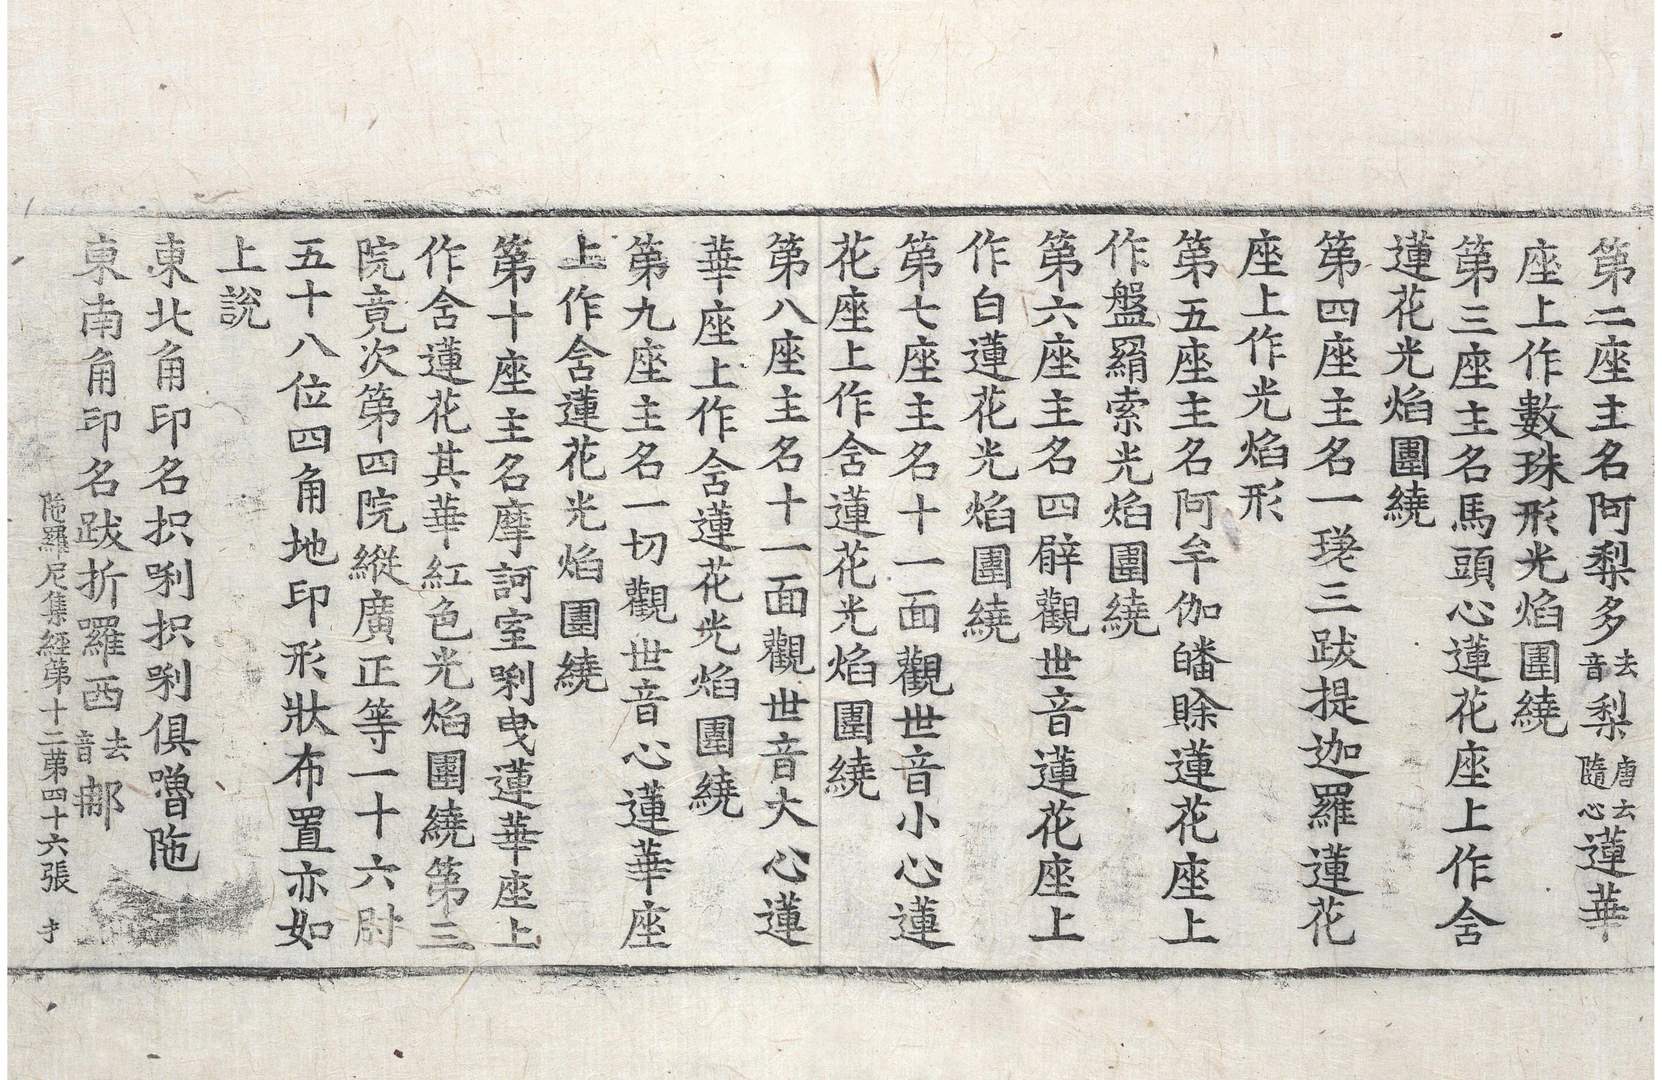 第二座主名阿梨多去音梨唐云隨心蓮華
座上作數珠形光焰圍繞
第三座主名馬頭心蓮花座上作含
蓮花光焰圍繞
第四座主名一瑳三跋提迦羅蓮花
座上作光焰形
第五座主名阿牟伽皤賒蓮花座上
作盤羂索光焰圍繞
第六座主名四臂觀世音蓮花座上
作白蓮花光焰圍繞
第七座主名十一面觀世音小心蓮
花座上作含蓮花光焰圍繞
第八座主名十一面觀世音大心蓮
華座上作含蓮花光焰圍繞
第九座主名一切觀世音心蓮華座
上作含蓮花光焰圍繞
第十座主名摩訶室唎曳蓮華座上
作含蓮花其華紅色光焰圍繞第三
院竟次第四院縱廣正等一十六肘
五十八位四角地印形狀布置亦如
上說
東北角印名抧唎抧唎俱嚕陁
東南角印名跋折囉西去音那
陁羅尼集經第十二第四十六張 才